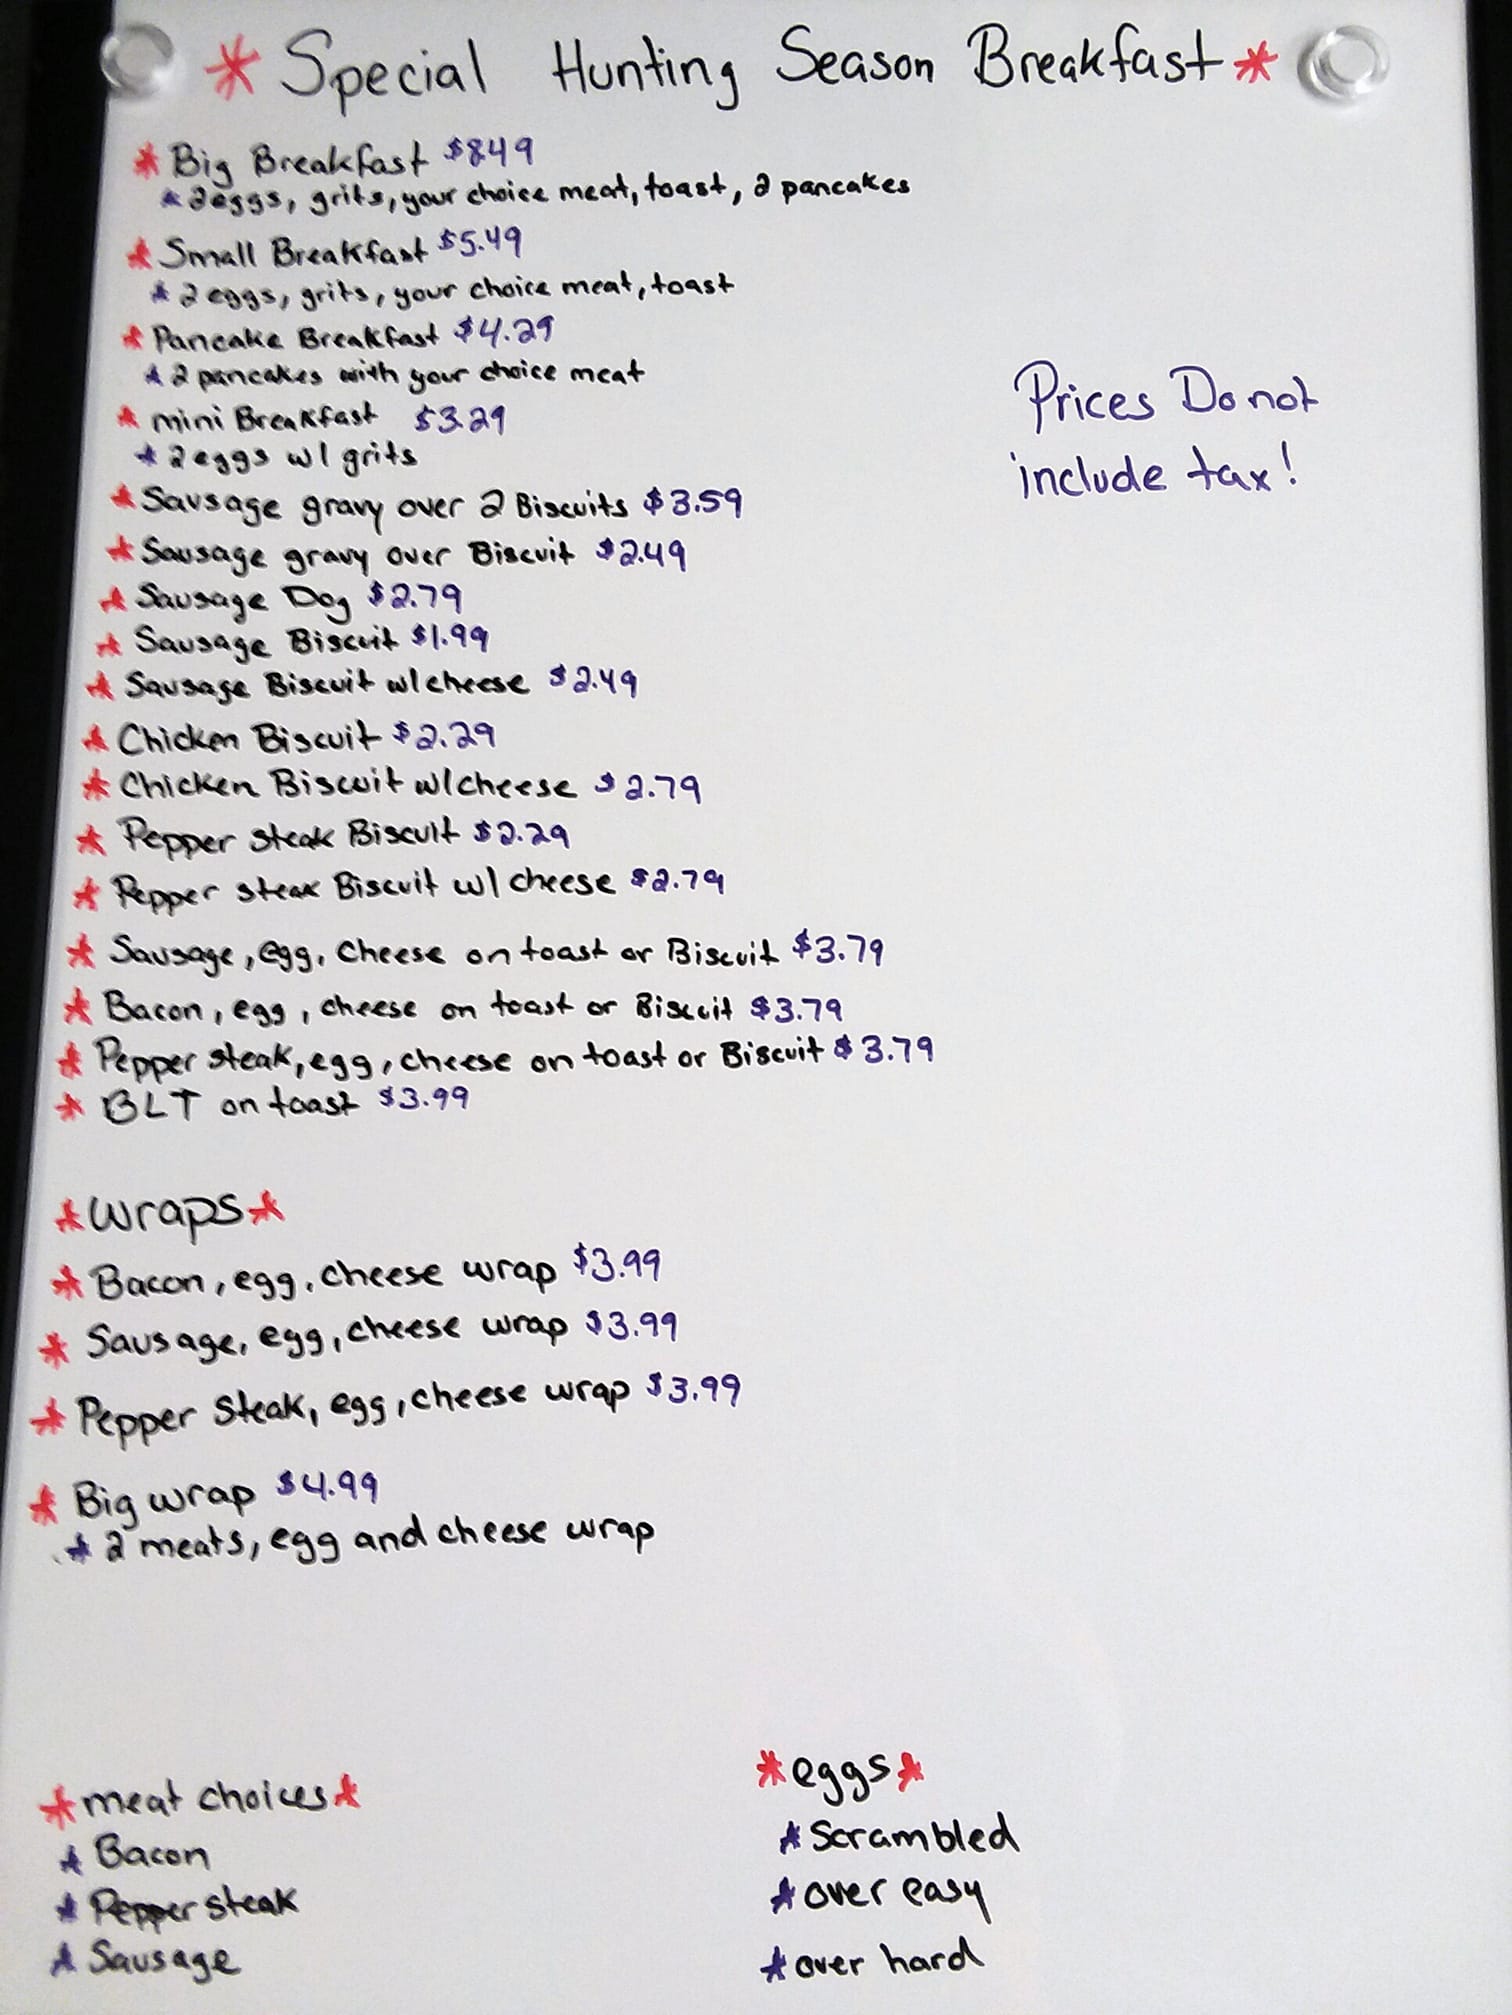 * Special Hunting Season Breakfast *
* Big Breakfast $8.49
* 2 eggs, grits, your choice meat, toast, 2 pancakes
* Small Breakfast $5.49
* 2 eggs, grits, your choice meat, toast
* Pancake Breakfast $4.29
* 2 pancakes with your choice meat
* mini Breakfast $3.29
* 2 eggs w/ grits
Prices Do not
include tax!
* Sausage gravy over 2 Biscuits $3.59
* Sausage gravy over Biscuit $2.49
* Sausage Dog $2.79
* Sausage Biscuit $1.99
* Sausage Biscuit w/cheese $2.49
* Chicken Biscuit $2.29
* Chicken Biscuit w/cheese $2.79
* Pepper steak Biscuit $2.29
* Pepper steak Biscuit w/ cheese $2.79
* Sausage, egg, cheese on toast or Biscuit $3.79
* Bacon, egg, cheese on toast or Biscuit $3.79
* Pepper steak, egg, cheese on toast or Biscuit $3.79
* BLT on toast $3.99
* wraps *
* Bacon, egg, cheese wrap $3.99
* Sausage, egg, cheese wrap $3.99
* Pepper steak, egg, cheese wrap $3.99
* Big wrap $4.99
* 2 meats, egg and cheese wrap
* meat choices *
* Bacon
* Pepper steak
* Sausage
* eggs *
* Scrambled
* over easy
* over hard